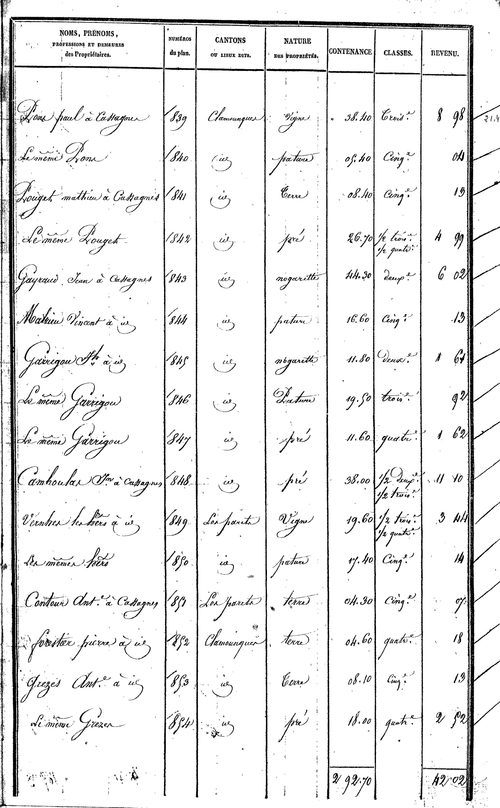 NOMS, PRÉNOMS, PROFESSIONS ET DEMEURES des Propriétaires. NUMÉROS du plan. CANTONS OU LIEUX DITS. NATURE DES PROPRIÉTÉS. CONTENANCE CLASSES. REVENU.
Pons paul à Cassagnes 1839 Clamounques Vigne 38.40 Trois.e 8 98
Le même Pons 1840 id pature 05.40 Cinq.e 04
Pouget mathieu à Cassagnes 1841 id Terre 08.40 Cinq.e 13
Le même Pouget 1842 id pré 26.70 1/2 trois.e 1/2 quatr.e 4 99
Gayraud Jean à Cassagnes 1843 id nogarette 44.30 deux.e 6 02
Mathieu Vincent à id 1844 id pature 16.60 Cinq.e 13
Garrigou à id 1845 id nogarette 11.80 Deux.e 1 61
Le même Garrigou 1846 id Pature 19.50 trois.e 92
Le même Garrigou 1847 id pré 11.60 quatr.e 1 62
Camboulas à Cassagnes 1848 id pré 38.00 1/2 Deux.e 1/2 trois.e 11 10
Vernhes les hérs à id 1849 Les parets Vigne 19.60 1/2 trois.e 1/2 quatr.e 3 44
Les mêmes hérs 1850 id pature 17.40 Cinq.e 14
Contour Ant.e à Cassagnes 1851 Les parets terre 04.30 Cinq.e 07
forestier pierre à id 1852 Clamounques terre 04.60 quatr.e 18
Grezes Ant.e à id 1853 id Terre 08.10 Cinq.e 13
Le même Grezes 1854 id pré 18.00 quatr.e 2 52
2 92.70 42 02